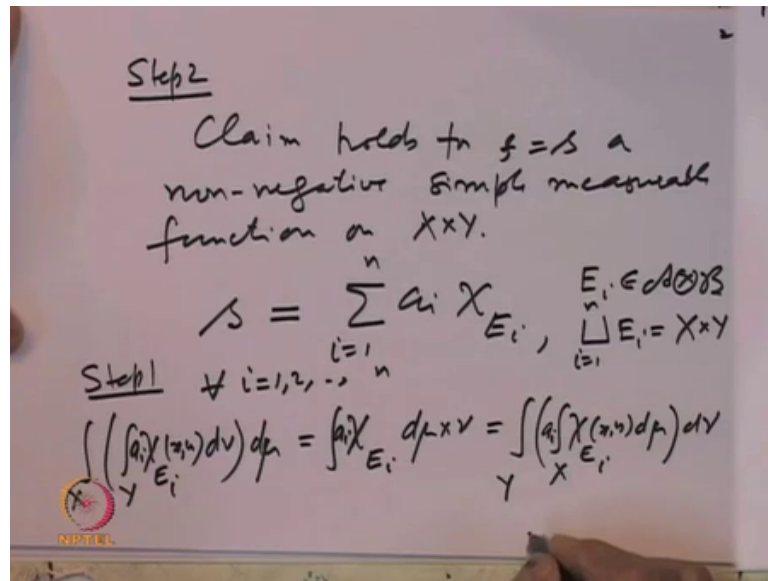 2
Step 2
Claim holds for f = s a
non-negative simple measurable
function on X×Y.
s = \sum_{i=1}^{n} a_i χ_{E_i}, E_i ∈ 𝒜⊗ℬ, \bigsqcup_{i=1}^{n} E_i = X×Y
Step 1 ∀ i=1,2,.., n
\int_X ( \int_Y a_i χ_{E_i}(x,y) dν ) dμ = \int a_i χ_{E_i} dμ×ν = \int_Y ( a_i \int_X χ_{E_i}(x,y) dμ ) dν
NPTEL